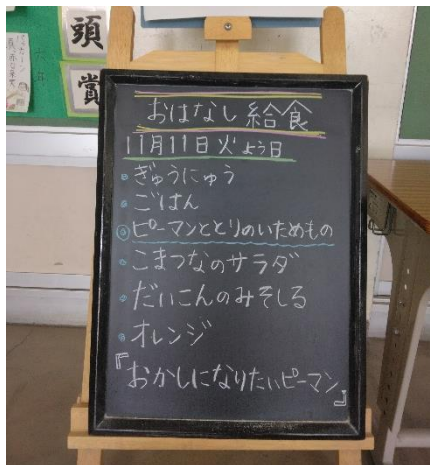 頭
賞
おはなし給食
11月11日火よう日
・ぎゅうにゅう
・ごはん
◎ピーマンととりのいためもの
・こまつなのサラダ
・だいこんのみそしる
・オレンジ
『おかしになりたいピーマン』